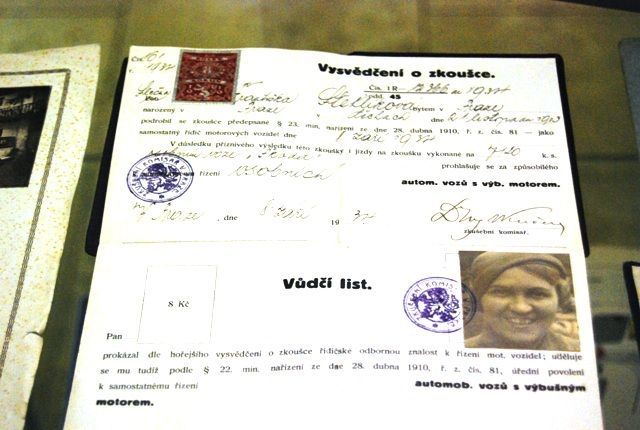 Vysvědčení o zkoušce.
Čís.
Čís. 1R— 19
odd. 45
Pan bytem v Praze
narozený v dne listopadu
podrobil se zkoušce předepsané § 23. min. nařízení ze dne 28. dubna 1910, ř. z. čís. 81 — jako
samostatný řidič motorových vozidel dne září
V důsledku příznivého výsledku této zkoušky i jízdy na zkoušku vykonané na 7-20 k. s.
prohlašuje se za způsobilého
řízení osobních
autom. vozů s výb. motorem.
V Praze, dne září 19
zkušební komisař.
Vůdčí list.
8 Kč
Pan
prokázal dle hořejšího vysvědčení o zkoušce řidičské odbornou znalost k řízení mot. vozidel; uděluje
se mu tudíž podle § 22. min. nařízení ze dne 28. dubna 1910, ř. z. čís. 81, úřední povolení
k samostatnému řízení automob. vozů s výbušným
motorem.